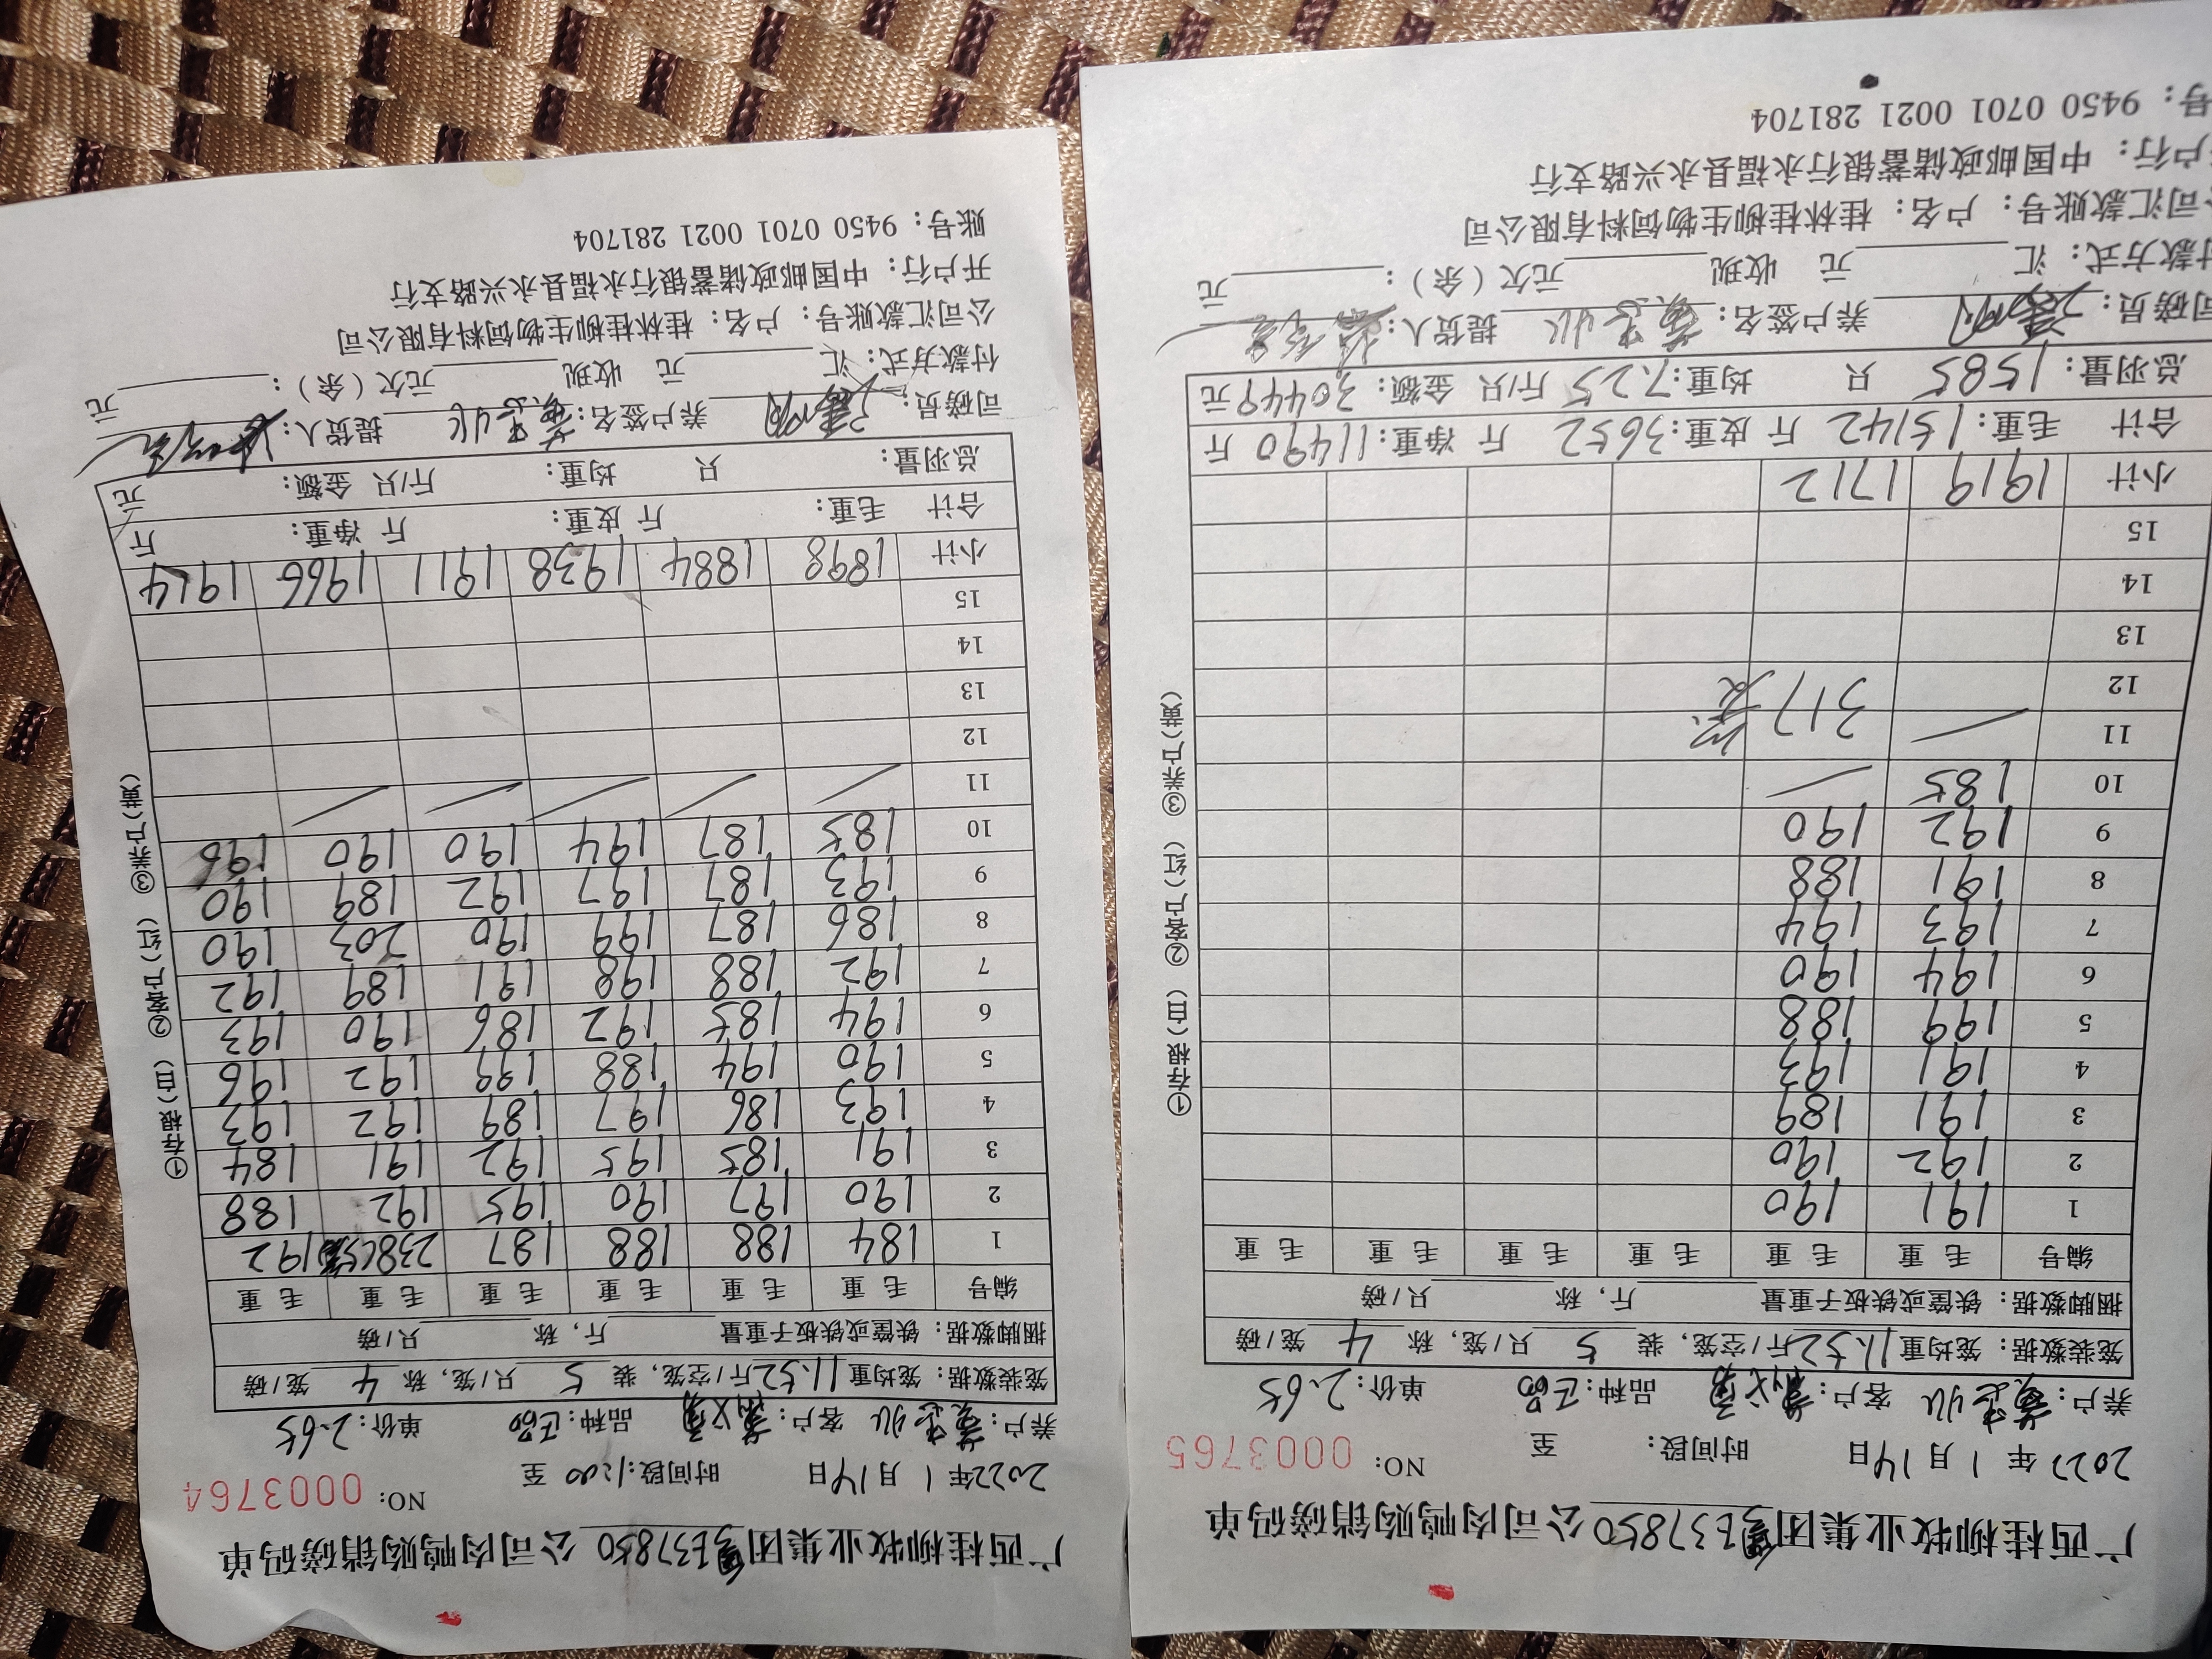 广西桂柳牧业集团 E37850 公司肉鸭购销磅码单
2022年1月14日 时间段:1:00 至 NO: 0003764
养户: 客户: 品种:正品 单价:2.65
笼装数据:笼均重11.52斤/空笼,装5只/笼,称4笼/磅
捆脚数据:铁筐或铁板子重量 斤,称 只/磅
编号 毛重 毛重 毛重 毛重 毛重 毛重
1 184 188 188 187 238 192
2 190 197 190 195 192 188
3 191 185 195 192 191 184
4 193 186 197 189 192 193
5 190 194 188 199 192 196
6 194 185 192 186 190 193
7 192 188 198 191 189 192
8 186 187 199 190 203 190
9 193 187 197 192 189 190
10 185 187 194 190 190 196
11
12
13
14
15
小计 1898 1884 1938 1911 1966 1914
合计 毛重: 斤 皮重: 斤 净重: 斤
总羽量: 只 均重: 斤/只 金额: 元
司磅员: 养户签名: 提货人:
付款方式:汇 元 收现 元欠(余): 元
公司汇款账号:户名:桂林桂柳生物饲料有限公司
开户行:中国邮政储蓄银行永福县永兴路支行
账号:9450 0701 0021 281704
①存根(白) ②客户(红) ③养户(黄)
广西桂柳牧业集团 E37850 公司肉鸭购销磅码单
2022年1月14日 时间段: 至 NO: 0003765
养户: 客户: 品种:正品 单价:2.65
笼装数据:笼均重11.52斤/空笼,装5只/笼,称4笼/磅
捆脚数据:铁筐或铁板子重量 斤,称 只/磅
编号 毛重 毛重 毛重 毛重 毛重 毛重
1 191 190
2 192 190
3 191 189
4 191 193
5 199 188
6 194 190
7 193 194
8 191 188
9 192 190
10 185
11 317
12
13
14
15
小计 1919 1712
合计 毛重:15142斤 皮重:3652斤 净重:11490斤
总羽量:1585只 均重:7.25斤/只 金额:30449元
司磅员: 养户签名: 提货人:
付款方式:汇 元 收现 元欠(余): 元
公司汇款账号:户名:桂林桂柳生物饲料有限公司
户行:中国邮政储蓄银行永福县永兴路支行
号:9450 0701 0021 281704
①存根(白) ②客户(红) ③养户(黄)